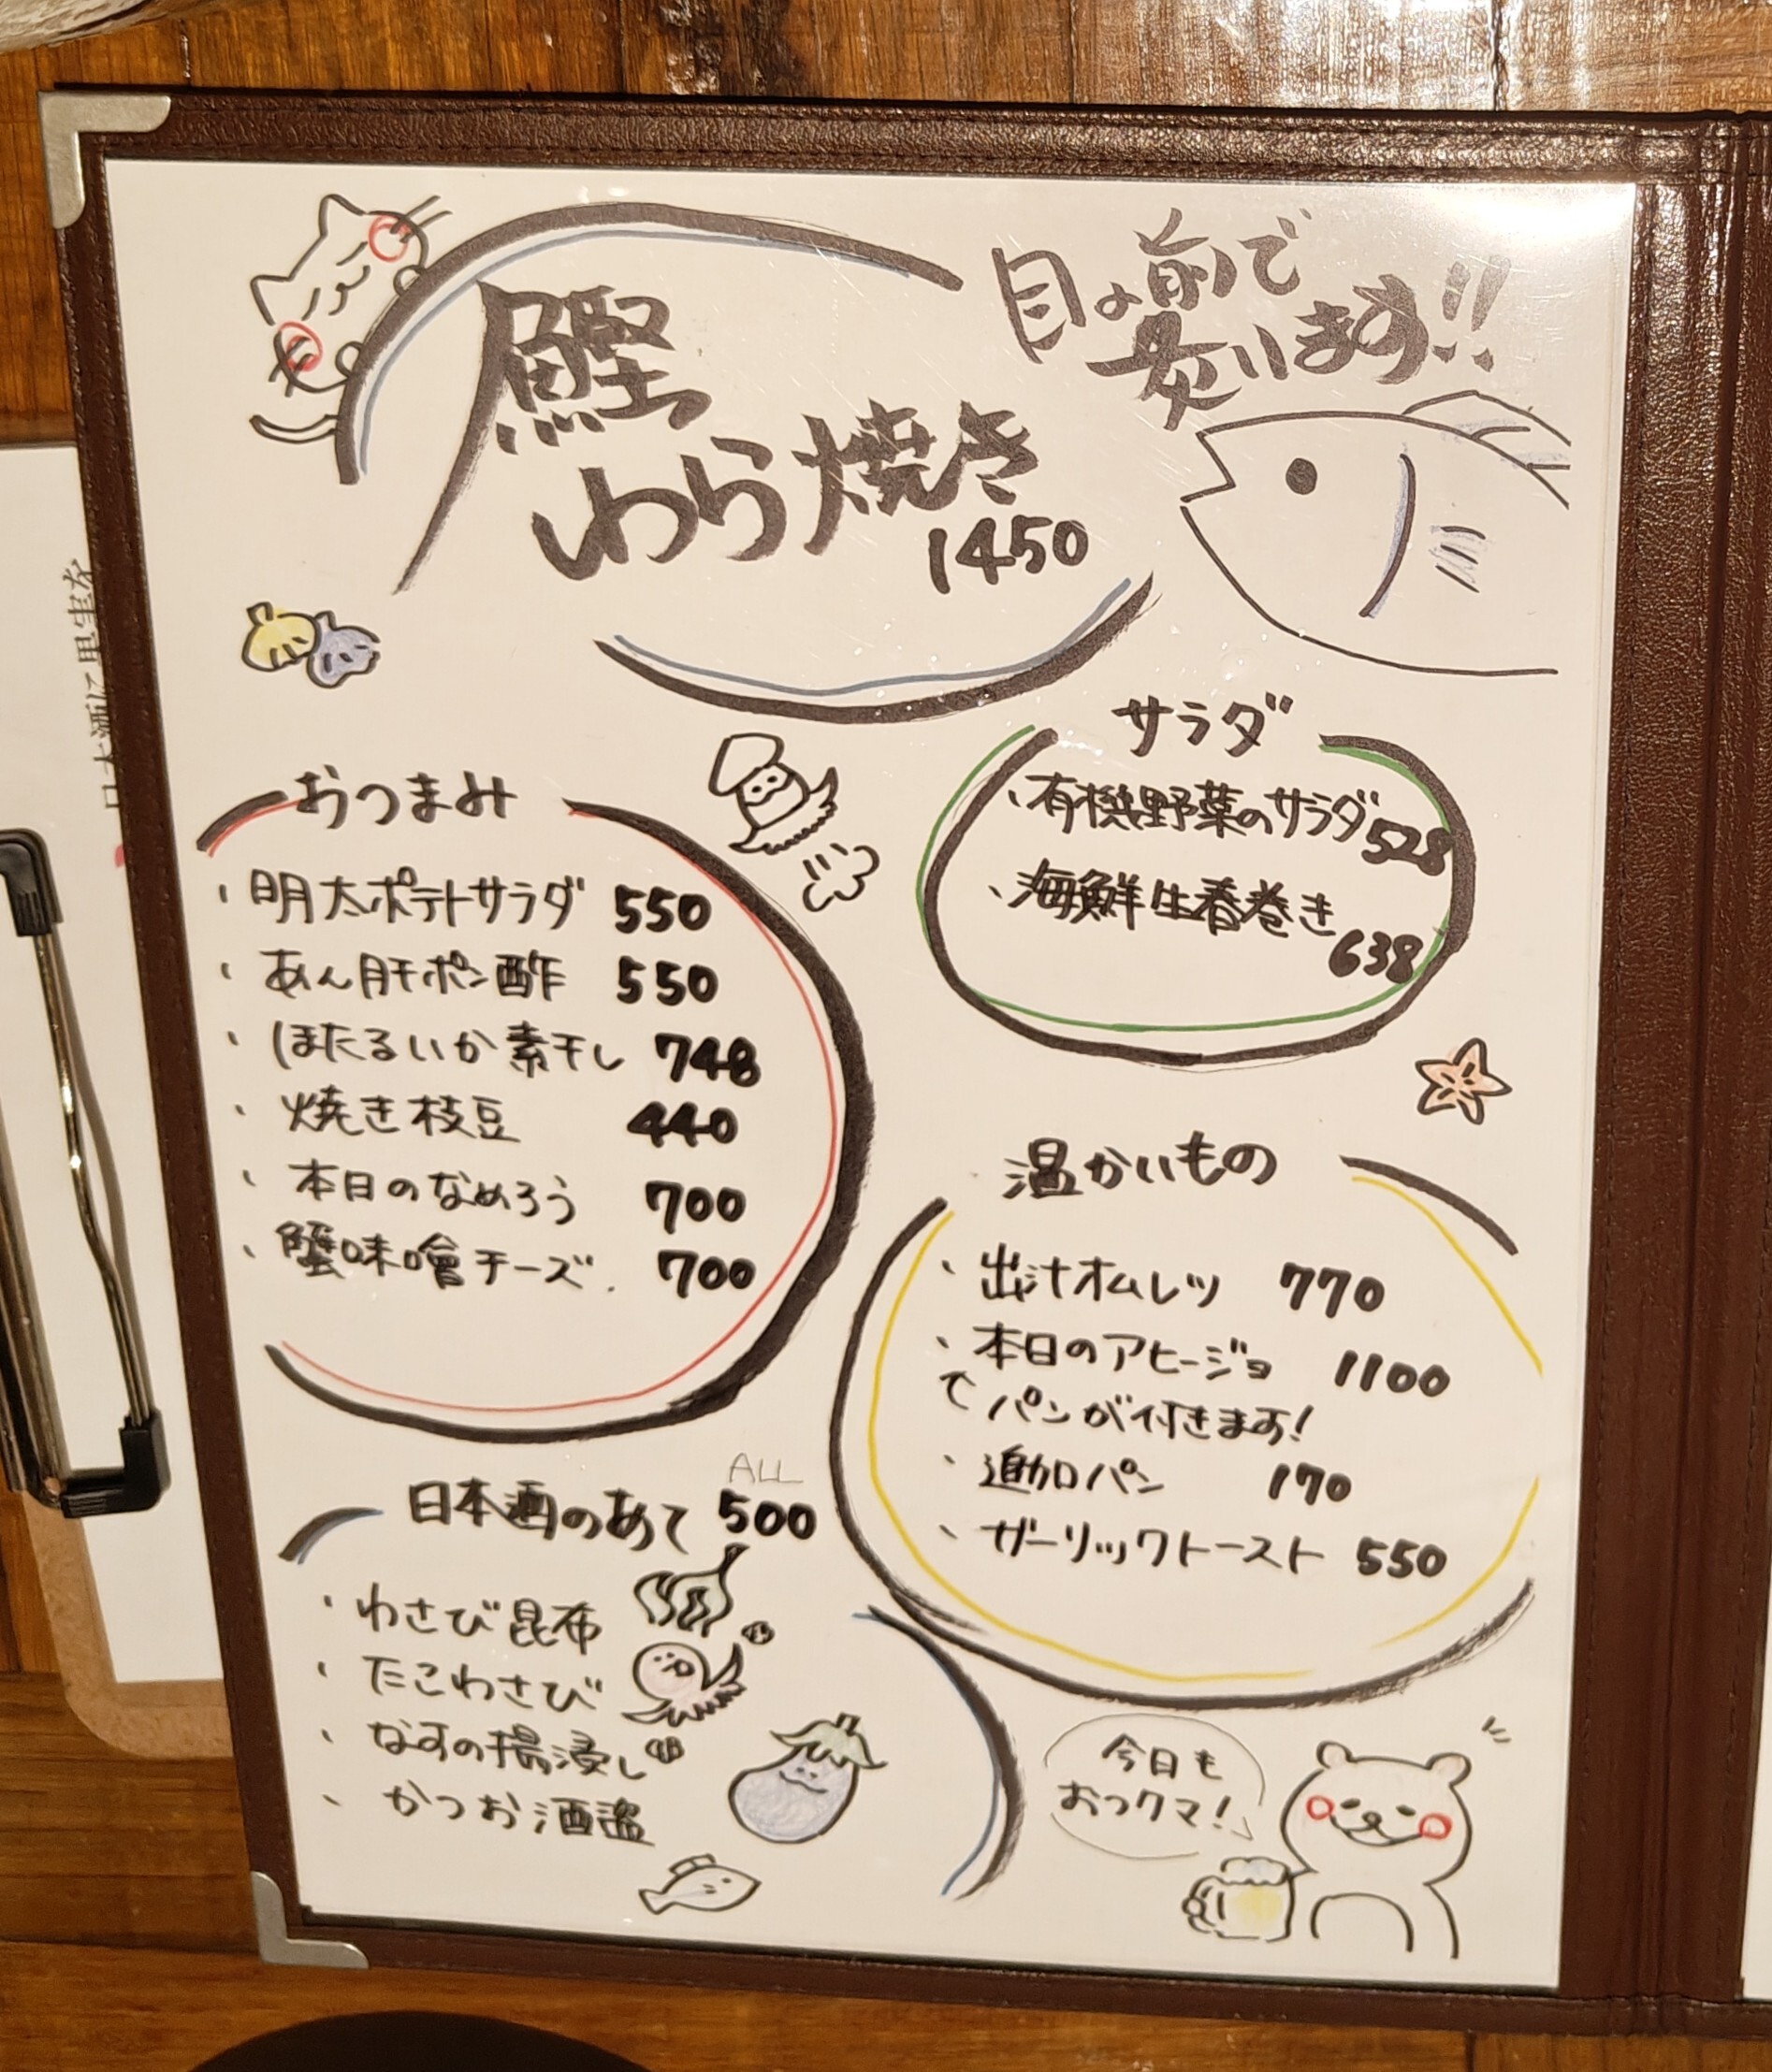 目の前で
炙ります!!
鰹
わら焼き
1450
サラダ
、有機野菜のサラダ 528
、海鮮生春巻き 638
おつまみ
、明太ポテトサラダ 550
、あん肝ポン酢 550
、ほたるいか素干し 748
、焼き枝豆 440
、本日のなめろう 700
、蟹味噌チーズ. 700
温かいもの
、出汁オムレツ 770
、本日のアヒージョ 1100
パンが付きます!
、追加パン 170
、ガーリックトースト 550
ALL
日本酒のあて 500
、わさび昆布
、たこわさび
、なすの揚浸し
、かつお酒盗
今日も
おつクマ!